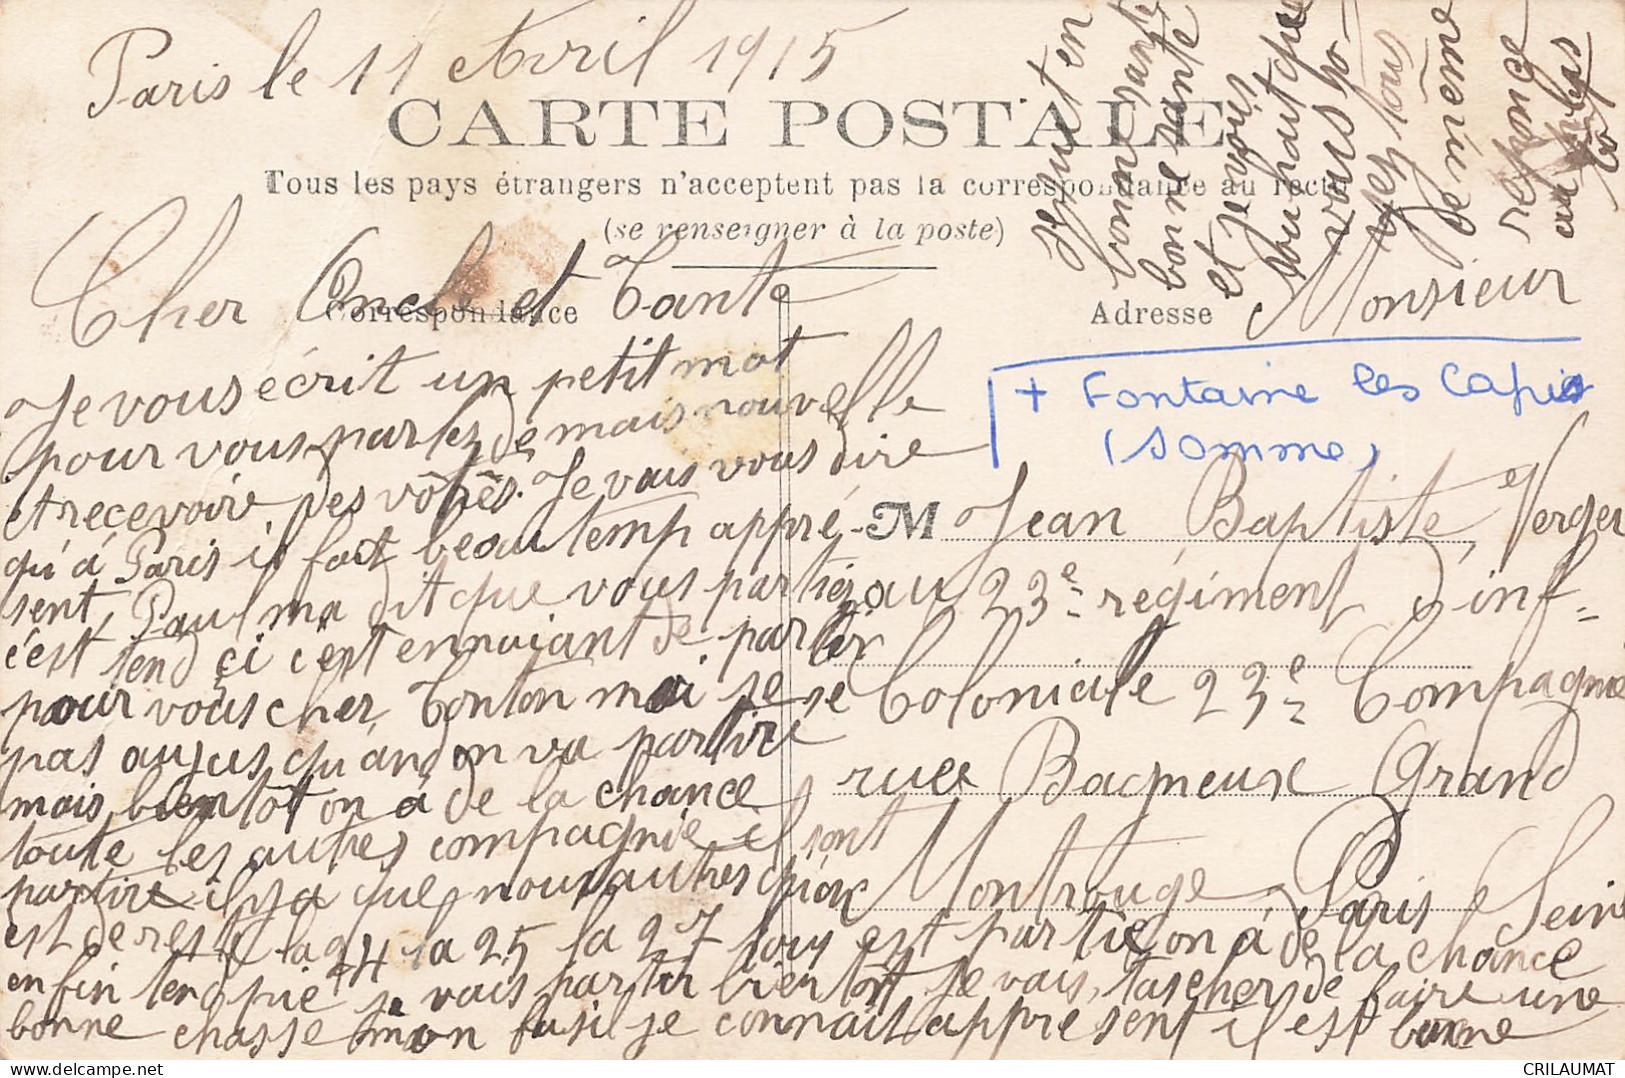 Paris le 11 Avril 1915
CARTE POSTALE
Tous les pays étrangers n'acceptent pas la correspondance au recto
(se renseigner à la poste)
Correspondance
Adresse
Cher Oncle et Tante
Je vous écrit un petit mot
pour vous parlez de mais nouvelle
et recevoire des vôtres. Je vais vous dire
qu'à Paris il fait beau temp appré-
sent, Paul ma dit que vous partiez
c'est tend çi c'est ennuiant de partir
pour vous cher Tonton moi je se
pas aujus qu'an don va partire
mais bientôt on a de la chance
toute les autres compagnie il sont
partire il y a que nous autres qui on
est de reste la 24 la 25 la 27 tous est partie on a de la chance
enfin tend pie je vais partir bientôt je vais tascher de faire une
bonne chasse mon fusil je connait appresent il est bonne
Monsieur
+ Fontaine les Capis
(Somme)
M Jean Baptiste Verger
au 23e régiment d'inf=
Coloniale 23e Compagnie
rue Bagneux Grand
Montrouge Paris Seine
tout en
bonne santé
bonne santé
et je vois
souhait que
vous so-
yez tous
de même